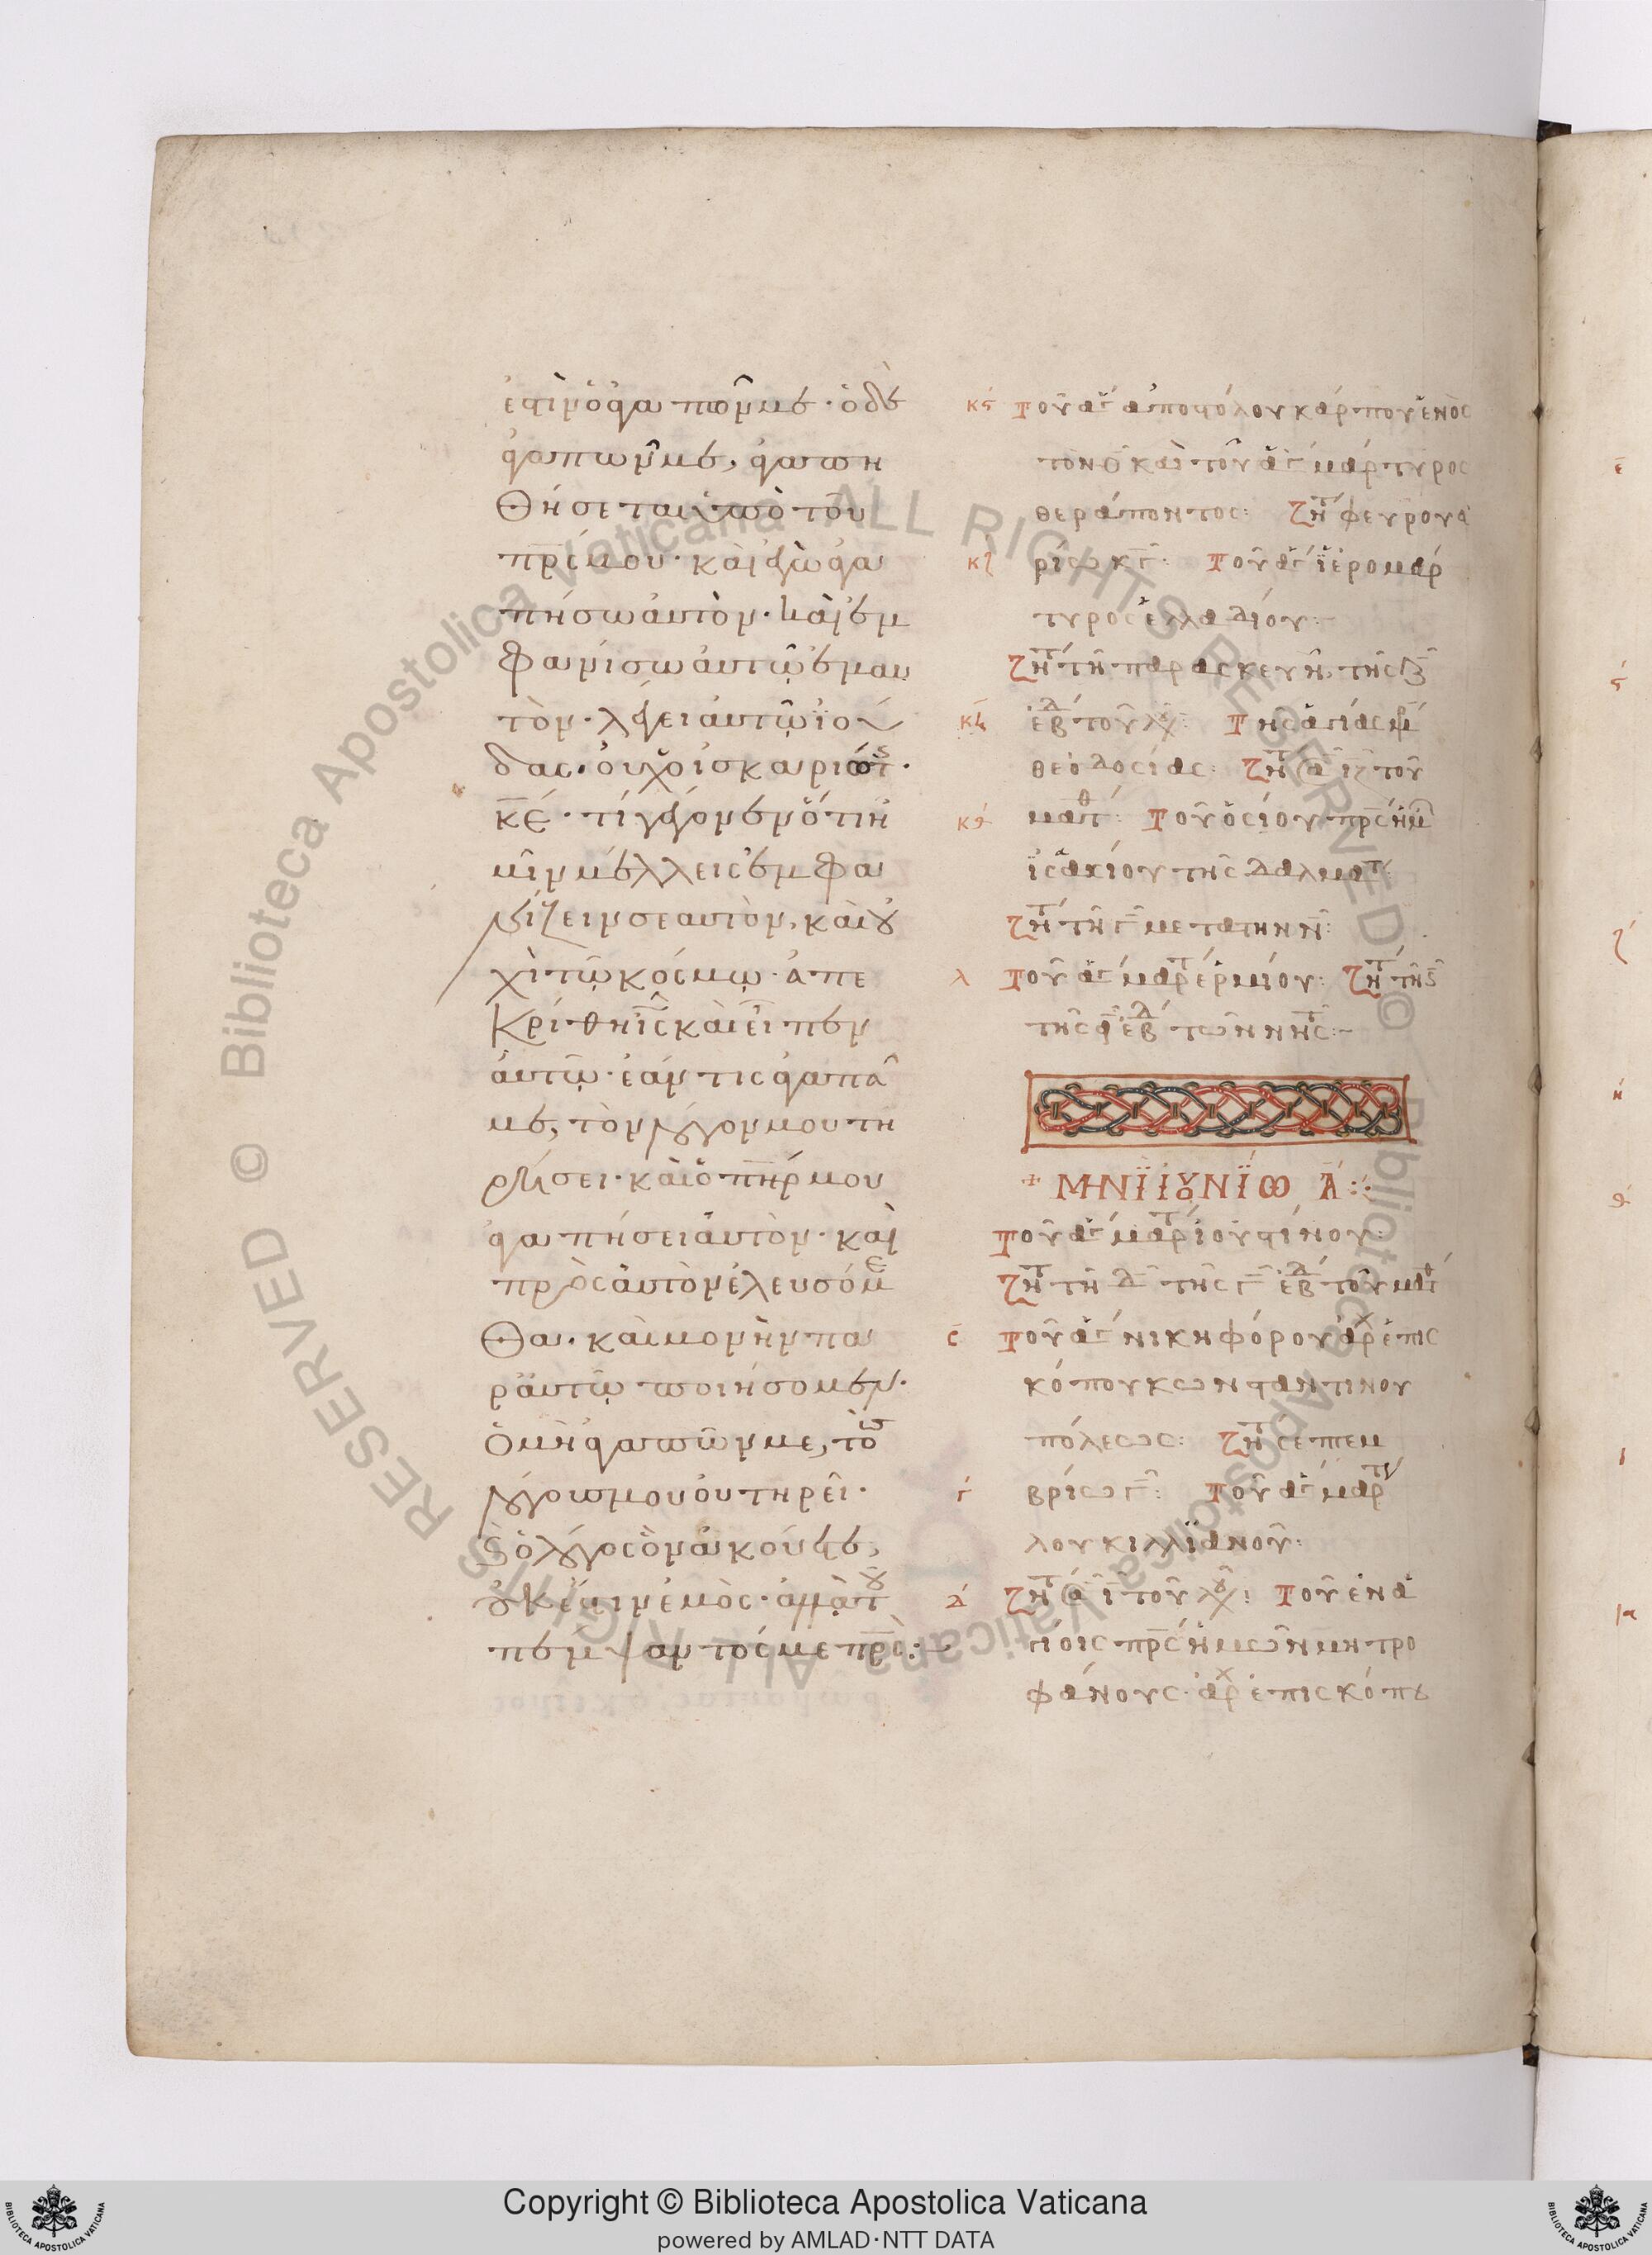 ἐστὶν ὁ ἀγαπῶν με· ὁ δὲ
ἀγαπῶν με, ἀγαπη
θήσεται ὑπὸ τοῦ
πρ̅ς μου· καὶ ἐγὼ ἀγα
πήσω αὐτὸν· καὶ ἐμ
φανίσω αὐτῷ ἐμαυ
τόν· λέγει αὐτῷ ϊού
δας· οὐχ ὁ ἰσκαριώτ
κ̅ε̅· τί γέγονεν ὅτι ἡ
μῖν μέλλεις ἐμφα
νίζειν σεαυτὸν, καὶ οὐ
χὶ τῷ κόσμῳ· ἀπε
κρίθη ι̅ς̅ καὶ εἶπεν
αὐτῷ· ἐάν τις ἀγαπᾶ
με, τὸν λόγον μου τη
ρήσει· καὶ ὁ π̅η̅ρ μου
ἀγαπήσει αὐτὸν· καὶ
πρὸς αὐτὸν ἐλευσόμε
θα· καὶ μονὴν πα
ρ' αὐτῷ ποιήσομεν·
ὁ μὴ ἀγαπῶν με, τοὺς
λόγους μου οὐ τηρεῖ·
καὶ ὁ λόγος ὃν ἀκούετε,
οὐκ ἔστιν ἐμὸς· ἀλλὰ τοῦ
πέμψαντός με πρ̅ς:
κϛ τοῦ ἁγ ἀποστόλου κάρπου ἑνὸς
τῶν ο καὶ τοῦ ἁγ μάρτυρος
θεράποντος: ζητ φευρουα
κζ ρίω κγ: τοῦ ἁγ ϊερομάρ
τυρος ἑλλαδίου:
ζητ τῆ παρασκευῆ τῆς ζ
κη ἑβδ τοῦ λκ: τῆς ἁγίας μ
θεοδοσίας: ζητ σα ιζ τοῦ
κθ ματθ: τοῦ ὁσίου πρ̅ς ἡμ
ϊσακίου τῆς δαλματ:
ζητ τῆ γ μετα την ν:
λ τοῦ ἁγ μαρτ ἑρμίου: ζητ τῆ ϛ
τῆς α ἑβδ τῶν νηστ:
+ ΜΗΝῒ ἸΟΥΝΐΩ Α:
τοῦ ἁγ μαρτ ἰουστίνου:
ζητ τῆ δ τῆς γ ἑβδ τοῦ ματθ
β τοῦ ἁγ νικηφόρου ἀρχεπισ
κόπου κωνσταντινου
πόλεως: ζητ σεπτεμ
γ βρίω γ: τοῦ ἁγ μαρτυ
λουκιλλϊανοῦ:
δ ζητ σα ι τοῦ λκ: τοῦ ἐν ἁ
γίοις πρ̅ς ἡμῶν μητρο
φάνους ἀρχεπισκόπου
Copyright © Biblioteca Apostolica Vaticana
powered by AMLAD·NTT DATA